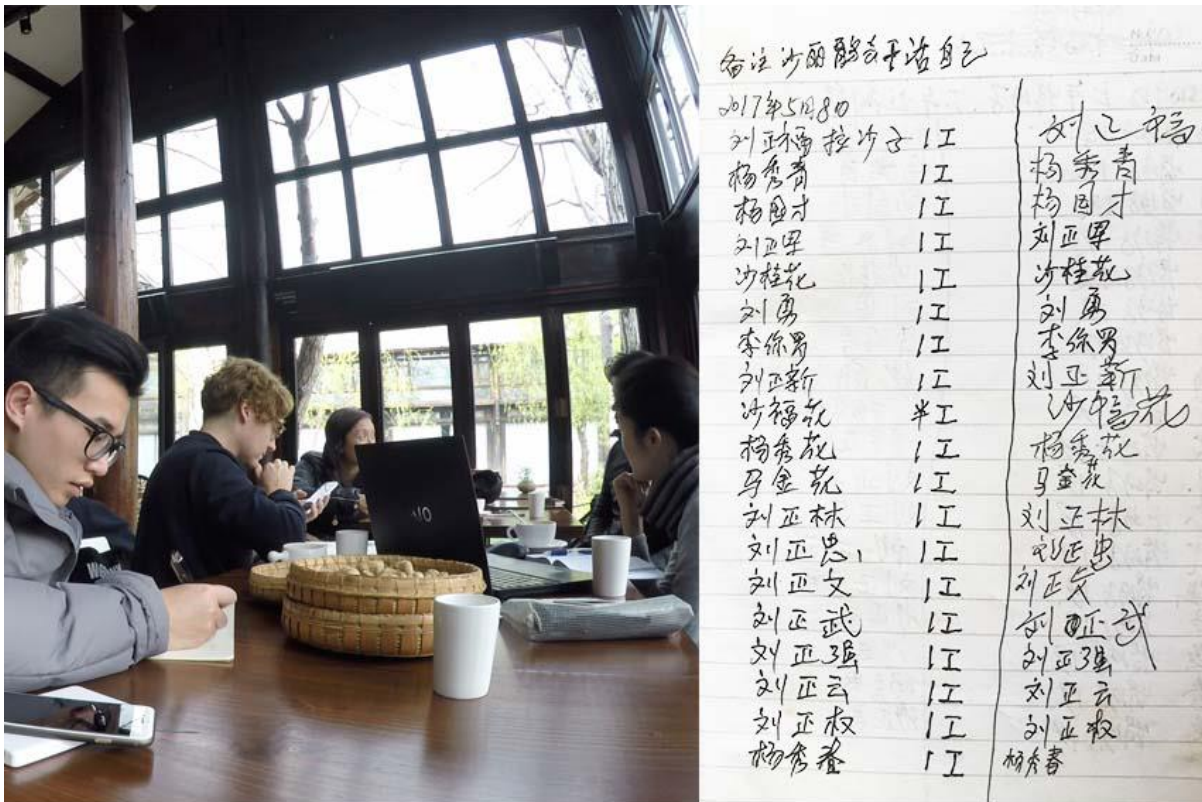 备注沙丽
自己
2017年5月8日
刘正福 拉沙子 1工 刘正福
杨秀青 1工 杨秀青
杨国才 1工 杨国才
刘正军 1工 刘正军
沙桂花 1工 沙桂花
刘勇 1工 刘勇
李你男 1工 李你男
刘正新 1工 刘正新
沙福花 半工 沙福花
杨秀花 1工 杨秀花
马金花 1工 马金花
刘正林 1工 刘正林
刘正忠 1工 刘正忠
刘正文 1工 刘正文
刘正武 1工 刘正武
刘正强 1工 刘正强
刘正云 1工 刘正云
刘正权 1工 刘正权
杨秀春 1工 杨秀春